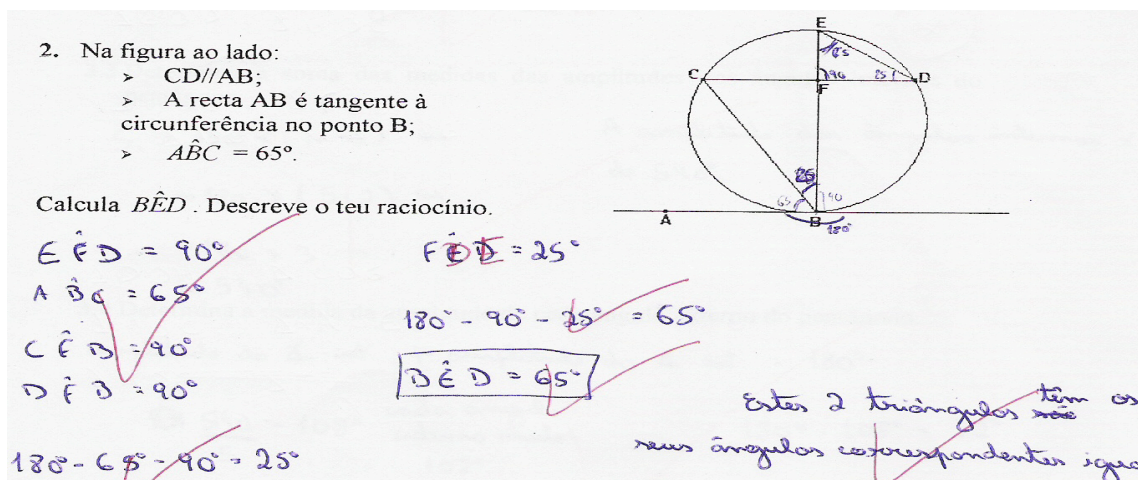 2. Na figura ao lado:
➢ CD//AB;
➢ A recta AB é tangente à
circunferência no ponto B;
➢ AB̂C = 65º.
Calcula BÊD. Descreve o teu raciocínio.
E
65
C
90
25
D
F
25
65
90
A
B
180º
EF̂D = 90°
AB̂C = 65°
CF̂B = 90°
DF̂B = 90°
180° - 65° - 90° = 25°
FD̂E = 25°
180° - 90° - 25° = 65°
BÊD = 65°
Estes 2 triângulos têm os
seus ângulos correspondentes igua